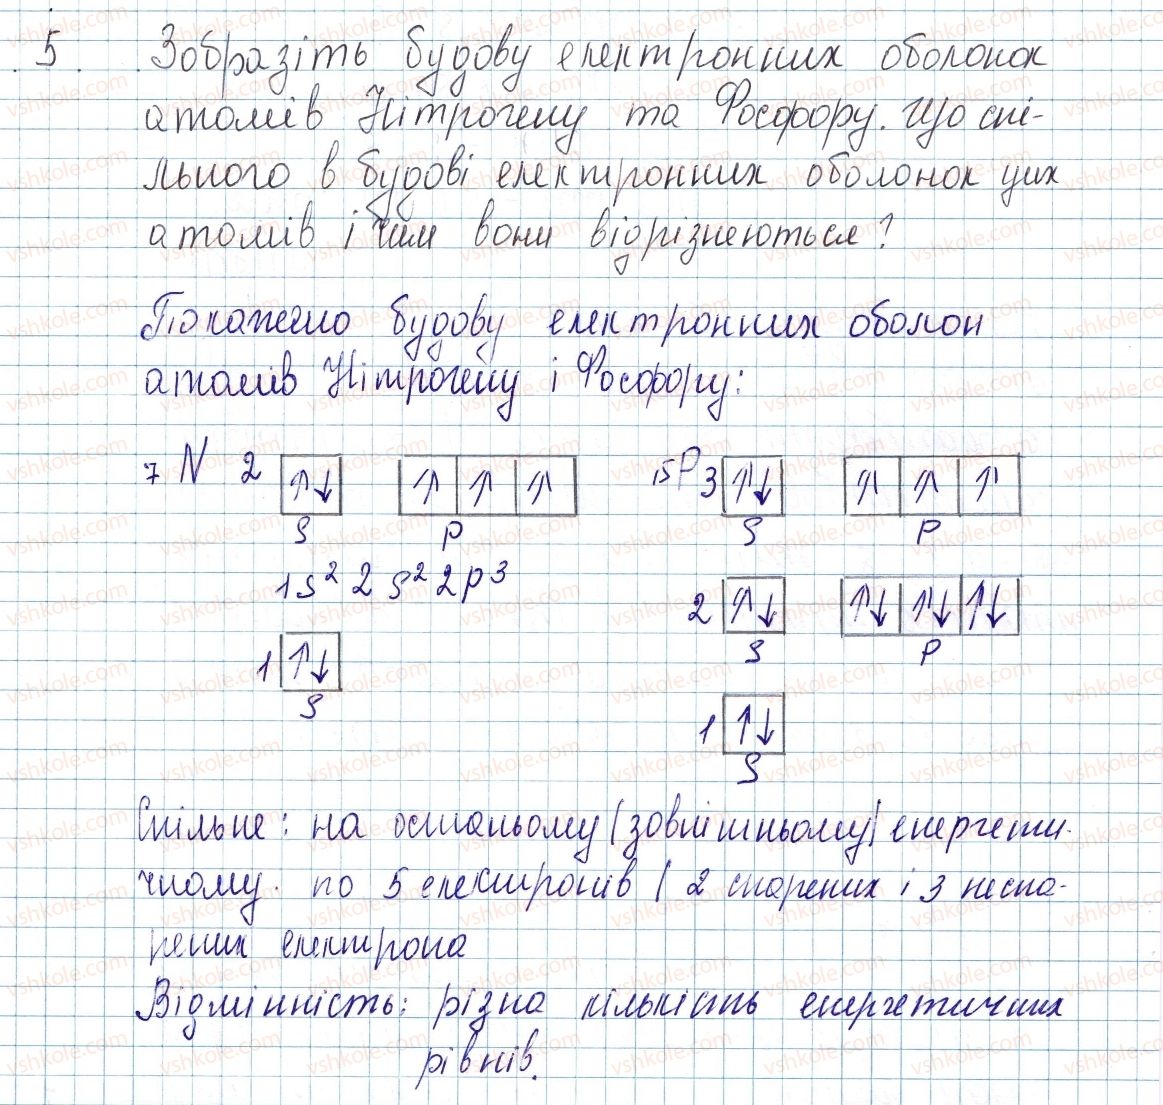 5. Зобразіть будову електронних оболонок
атомів Нітрогену та Фосфору. Що спі-
льного в будові електронних оболонок цих
атомів і чим вони відрізняються?
Покажемо будову електронних оболон
атомів Нітрогену і Фосфору:
7 N 2 ↑↓ ↑ ↑ ↑ 15 P 3 ↑↓ ↑ ↑ ↑
S P S P
1s² 2s² 2p³
2 ↑↓ ↑↓ ↑↓ ↑↓
S P
1 ↑↓
S
1 ↑↓
S
Спільне: на останьому (зовнішньому) енергети-
чному. по 5 електронів ( 2 спарених і 3 неспа-
рених електрона
Відмінність: різна кількість енергетичних
рівнів.